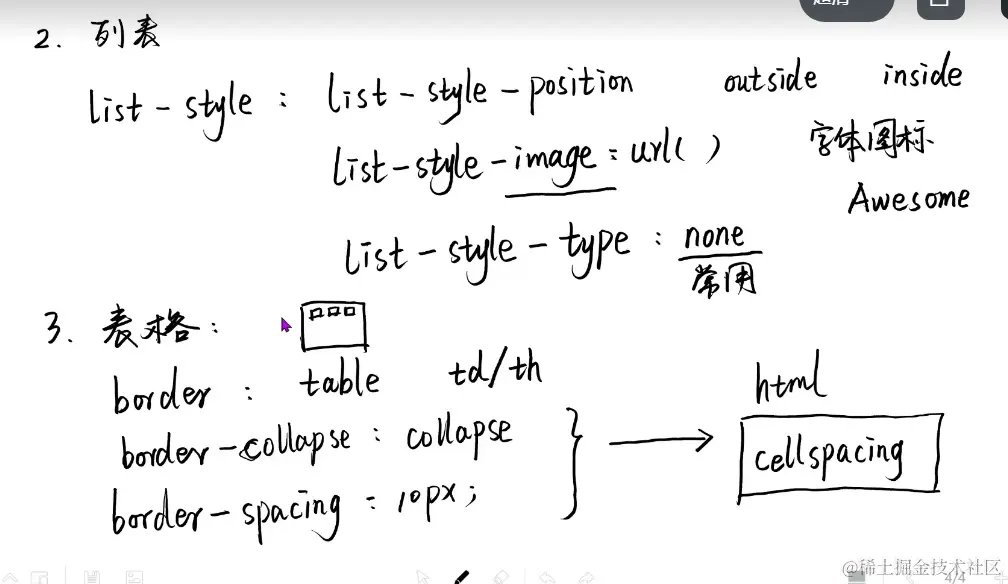 超清
2. 列表
list-style : list-style-position outside inside
list-style-image : url( ) 字体图标
Awesome
list-style-type : none
常用
3. 表格:
border : table td/th
html
border-collapse : collapse
cellspacing
border-spacing : 10px;
4/4
@稀土掘金技术社区